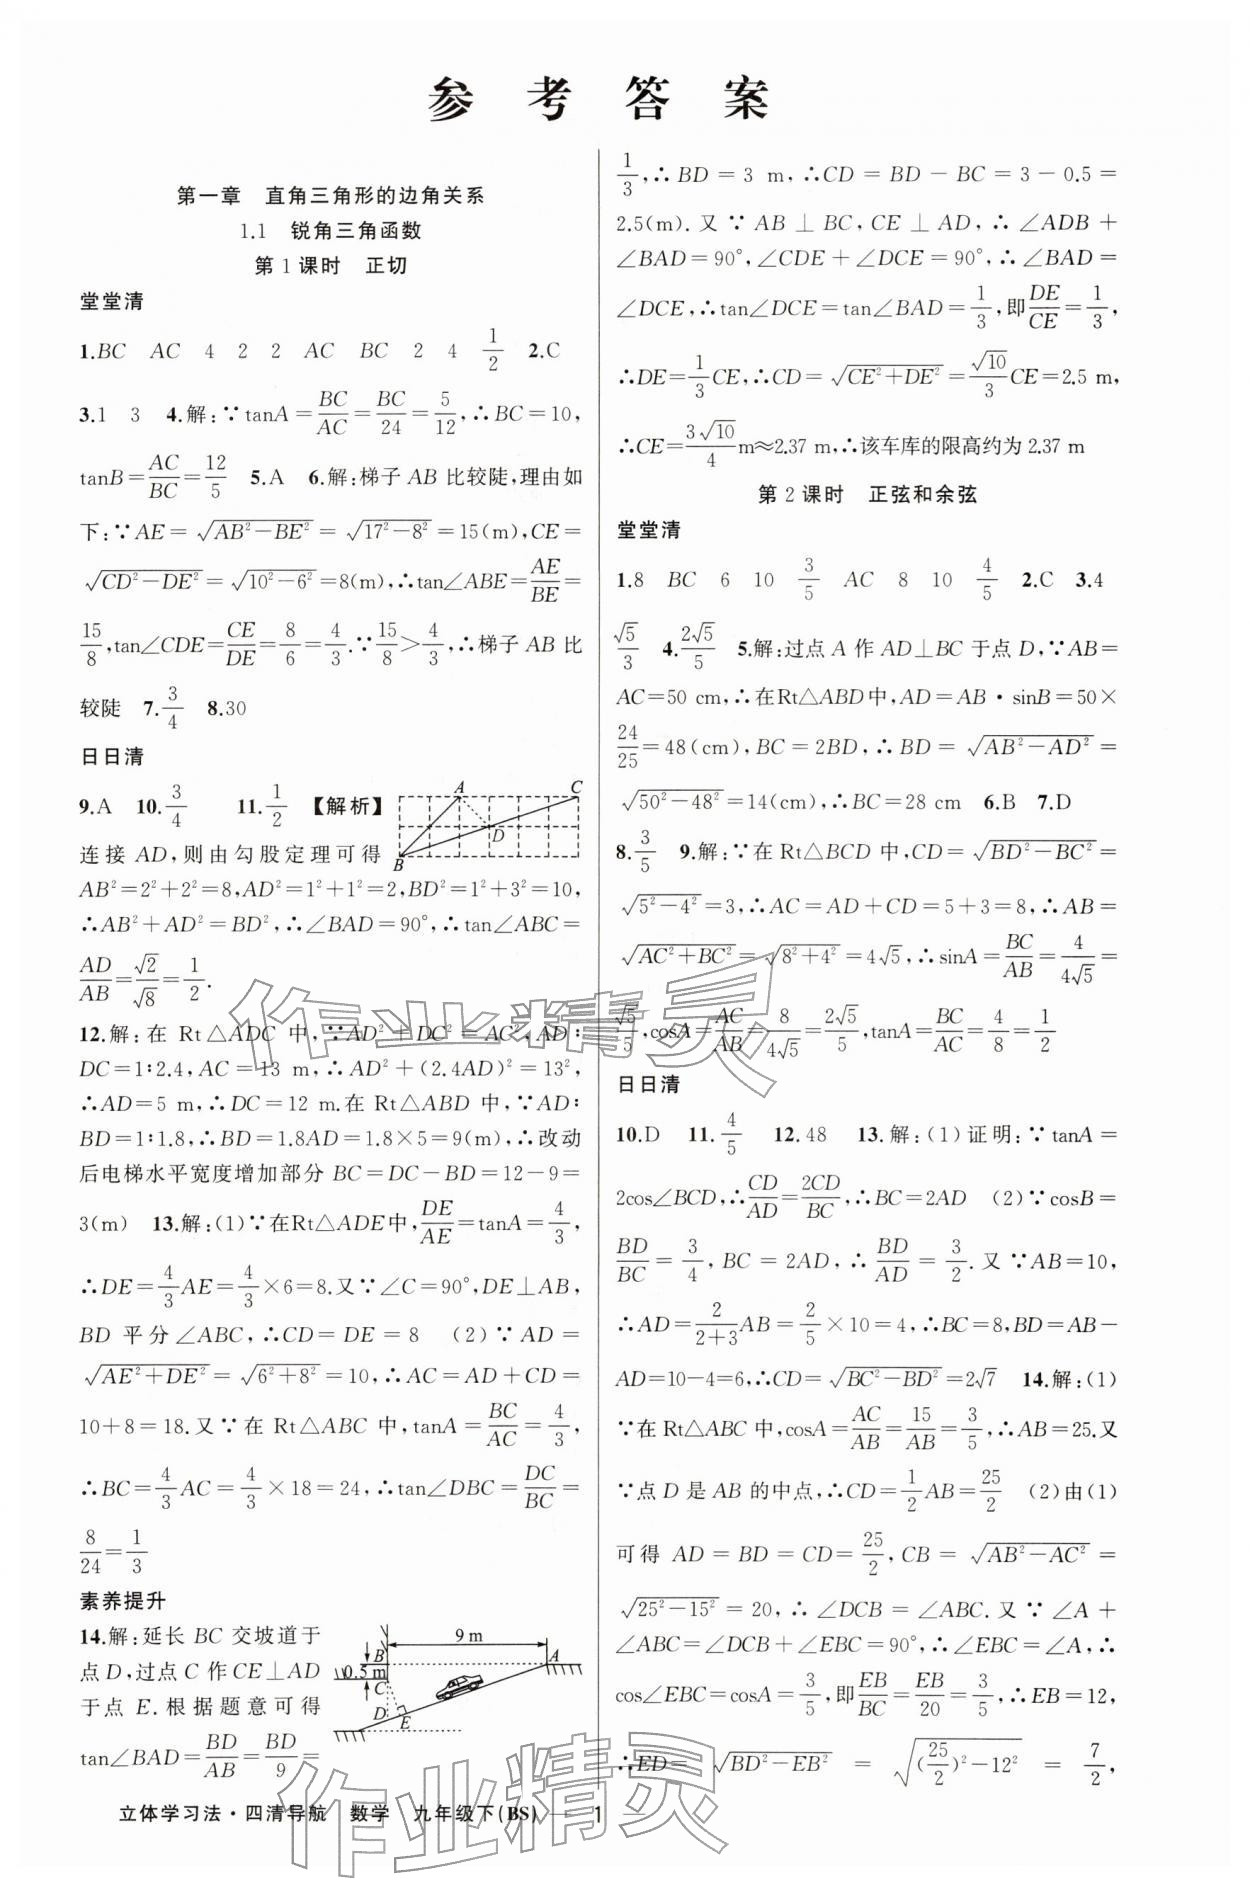 参考答案
第一章　直角三角形的边角关系
1.1　锐角三角函数
第1课时　正切
堂堂清
1.BC　AC　4　2　2　AC　BC　2　4　1/2　2.C
3.1　3　4.解:∵tanA=BC/AC=BC/24=5/12,∴BC=10,
tanB=AC/BC=12/5　5.A　6.解:梯子AB比较陡,理由如
下:∵AE=√(AB²-BE²)=√(17²-8²)=15(m),CE=
√(CD²-DE²)=√(10²-6²)=8(m),∴tan∠ABE=AE/BE=
15/8,tan∠CDE=CE/DE=8/6=4/3.∵15/8>4/3,∴梯子AB比
较陡　7.3/4　8.30
日日清
9.A　10.3/4　11.1/2　【解析】
A　C
D
B
连接AD,则由勾股定理可得
AB²=2²+2²=8,AD²=1²+1²=2,BD²=1²+3²=10,
∴AB²+AD²=BD²,∴∠BAD=90°,∴tan∠ABC=
AD/AB=√2/√8=1/2.
12.解:在Rt△ADC中,∵AD²+DC²=AC²,AD∶
DC=1∶2.4,AC=13 m,∴AD²+(2.4AD)²=13²,
∴AD=5 m,∴DC=12 m.在Rt△ABD中,∵AD∶
BD=1∶1.8,∴BD=1.8AD=1.8×5=9(m),∴改动
后电梯水平宽度增加部分BC=DC-BD=12-9=
3(m)　13.解:(1)∵在Rt△ADE中,DE/AE=tanA=4/3,
∴DE=4/3AE=4/3×6=8.又∵∠C=90°,DE⊥AB,
BD平分∠ABC,∴CD=DE=8　(2)∵AD=
√(AE²+DE²)=√(6²+8²)=10,∴AC=AD+CD=
10+8=18.又∵在Rt△ABC中,tanA=BC/AC=4/3,
∴BC=4/3AC=4/3×18=24,∴tan∠DBC=DC/BC=
8/24=1/3
素养提升
14.解:延长BC交坡道于
点D,过点C作CE⊥AD
于点E.根据题意可得
tan∠BAD=BD/AB=BD/9=
9 m
B　A
0.5 m
C
D
E
1/3,∴BD=3 m,∴CD=BD-BC=3-0.5=
2.5(m).又∵AB⊥BC,CE⊥AD,∴∠ADB+
∠BAD=90°,∠CDE+∠DCE=90°,∴∠BAD=
∠DCE,∴tan∠DCE=tan∠BAD=1/3,即DE/CE=1/3,
∴DE=1/3CE,∴CD=√(CE²+DE²)=√10/3CE=2.5 m,
∴CE=3√10/4m≈2.37 m,∴该车库的限高约为2.37 m
第2课时　正弦和余弦
堂堂清
1.8　BC　6　10　3/5　AC　8　10　4/5　2.C　3.4
√5/3　4.2√5/5　5.解:过点A作AD⊥BC于点D,∵AB=
AC=50 cm,∴在Rt△ABD中,AD=AB·sinB=50×
24/25=48(cm),BC=2BD,∴BD=√(AB²-AD²)=
√(50²-48²)=14(cm),∴BC=28 cm　6.B　7.D
8.3/5　9.解:∵在Rt△BCD中,CD=√(BD²-BC²)=
√(5²-4²)=3,∴AC=AD+CD=5+3=8,∴AB=
√(AC²+BC²)=√(8²+4²)=4√5,∴sinA=BC/AB=4/4√5=
√5/5,cosA=AC/AB=8/4√5=2√5/5,tanA=BC/AC=4/8=1/2
日日清
10.D　11.4/5　12.48　13.解:(1)证明:∵tanA=
2cos∠BCD,∴CD/AD=2CD/BC,∴BC=2AD　(2)∵cosB=
BD/BC=3/4,BC=2AD,∴BD/AD=3/2.又∵AB=10,
∴AD=2/(2+3)AB=2/5×10=4,∴BC=8,BD=AB-
AD=10-4=6,∴CD=√(BC²-BD²)=2√7　14.解:(1)
∵在Rt△ABC中,cosA=AC/AB=15/AB=3/5,∴AB=25.又
∵点D是AB的中点,∴CD=1/2AB=25/2　(2)由(1)
可得AD=BD=CD=25/2,CB=√(AB²-AC²)=
√(25²-15²)=20,∴∠DCB=∠ABC.又∵∠A+
∠ABC=∠DCB+∠EBC=90°,∴∠EBC=∠A,∴
cos∠EBC=cosA=3/5,即EB/BC=EB/20=3/5,∴EB=12,
∴ED=√(BD²-EB²)=√((25/2)²-12²)=7/2,
立体学习法·四清导航　数学　九年级下(BS)　1
作业精灵
作业精灵